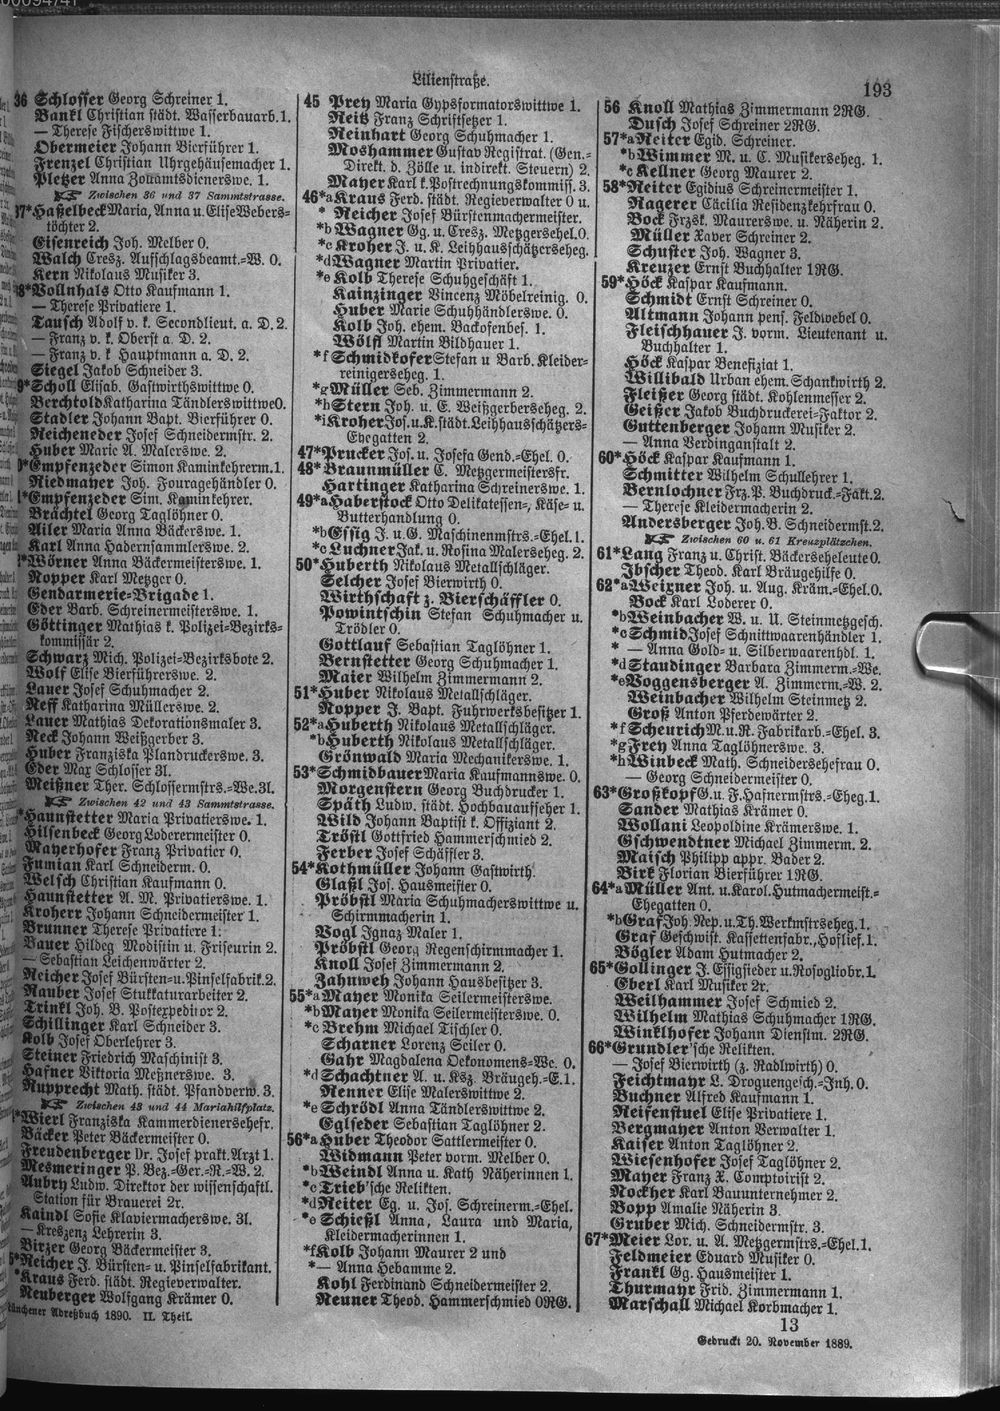 Lilienstraße.
193
36 Schlosser Georg Schreiner 1.
Bankl Christian städt. Wasserbauarb. 1.
— Therese Fischerswittwe 1.
Obermeier Johann Bierführer 1.
Frenzel Christian Uhrgehäusemacher 1.
Pletzer Anna Zollamtsdienerswe. 1.
Zwischen 36 und 37 Sammtstrasse.
37*Haßelbeck Maria, Anna u. Elise Webers-
töchter 2.
Eisenreich Joh. Melber 0.
Walch Cresz. Aufschlagsbeamt.-W. 0.
Kern Nikolaus Musiker 3.
38*Vollnhals Otto Kaufmann 1.
— Therese Privatiere 1.
Tausch Adolf v. k. Secondlieut. a. D. 2.
— Franz v. k. Oberst a. D. 2.
— Franz v. k. Hauptmann a. D. 2.
Siegel Jakob Schneider 3.
9*Scholl Elisab. Gastwirthswittwe 0.
Berchtold Katharina Tändlerswittwe 0.
Stadler Johann Bapt. Bierführer 0.
Reicheneder Josef Schneidermstr. 2.
Huber Marie A. Malerswe. 2.
*Empfenzeder Simon Kaminkehrerm. 1.
Riedmayer Joh. Fouragehändler 0.
*Empfenzeder Sim. Kaminkehrer.
Brächtel Georg Taglöhner 0.
Ailer Maria Anna Bäckerswe. 1.
Karl Anna Hadernsammlerswe. 2.
*Wörner Anna Bäckermeisterswe. 1.
Ropper Karl Metzger 0.
Gendarmerie-Brigade 1.
Eder Barb. Schreinermeisterswe. 1.
Göttinger Mathias k. Polizei-Bezirks-
kommissär 2.
Schwarz Mich. Polizei-Bezirksbote 2.
Wolf Elise Bierführerswe. 2.
Lauer Josef Schuhmacher 2.
Neff Katharina Müllerswe. 2.
Lauer Mathias Dekorationsmaler 3.
Neck Johann Weißgerber 3.
Huber Franziska Plandruckerswe. 3.
Eder Max Schlosser 3l.
Meißner Ther. Schlossermstrs.-We. 3l.
Zwischen 42 und 43 Sammtstrasse.
*Haunstetter Maria Privatierswe. 1.
Hilsenbeck Georg Loderermeister 0.
Mayerhofer Franz Privatier 0.
Fumian Karl Schneiderm. 0.
Welsch Christian Kaufmann 0.
Haunstetter A. M. Privatierswe. 1.
Kroherr Johann Schneidermeister 1.
Brunner Therese Privatiere 1.
Bauer Hildeg. Modistin u. Friseurin 2.
— Sebastian Leichenwärter 2.
Reicher Josef Bürsten-u. Pinselfabrik. 2.
Rauber Josef Stukkaturarbeiter 2.
Trinkl Joh. B. Postexpeditor 2.
Schillinger Karl Schneider 3.
Kolb Josef Oberlehrer 3.
Steiner Friedrich Maschinist 3.
Hafner Viktoria Meßnerswe. 3.
Rupprecht Math. städt. Pfandverw. 3.
Zwischen 43 und 44 Mariahilfplatz.
*Wierl Franziska Kammerdienersehefr.
Bäcker Peter Bäckermeister 0.
Freudenberger Dr. Josef prakt. Arzt 1.
Mesmeringer P. Bez.-Ger.-R.-W. 2.
Aubry Ludw. Direktor der wissenschaftl.
Station für Brauerei 2r.
Kaindl Sofie Klaviermacherswe. 3l.
— Kreszenz Lehrerin 3.
Birzer Georg Bäckermeister 3.
*Reicher J. Bürsten- u. Pinselfabrikant.
*Kraus Ferd. städt. Regieverwalter.
Neuberger Wolfgang Krämer 0.
Münchener Adreßbuch 1890. II. Theil.
45 Prey Maria Gypsformatorswittwe 1.
Reitz Franz Schriftsetzer 1.
Reinhart Georg Schuhmacher 1.
Moshammer Gustav Registrat. (Gen.-
Direkt. d. Zölle u. indirekt. Steuern) 2.
Mayer Karl k. Postrechnungskommiss. 3.
46*a Kraus Ferd. städt. Regieverwalter 0 u.
* Reicher Josef Bürstenmachermeister.
*b Wagner Gg. u. Cresz. Metzgersehel. 0.
*c Kroher J. u. K. Leihhausschätzerseheg.
*d Wagner Martin Privatier.
*e Kolb Therese Schuhgeschäft 1.
Kainzinger Vincenz Möbelreinig. 0.
Huber Marie Schuhhändlerswe. 0.
Kolb Joh. ehem. Backofenbes. 1.
Wölfl Martin Bildhauer 1.
*f Schmidkofer Stefan u. Barb. Kleider-
reinigerseheg. 1.
*g Müller Seb. Zimmermann 2.
*h Stern Joh. u. E. Weißgerberseheg. 2.
*i Kroher Jos. u. K. städt. Leihhausschätzers-
Ehegatten 2.
47*Prucker Jos. u. Josefa Gend.-Ehel. 0.
48*Braunmüller C. Metzgermeistersfr.
Hartinger Katharina Schreinerswe. 1.
49*a Haberstock Otto Delikatessen-, Käse- u.
Butterhandlung 0.
*b Essig J. u. G. Maschinenmstrs.-Ehel. 1.
*c Luchner Jak. u. Rosina Malerseheg. 2.
50*Huberth Nikolaus Metallschläger.
Selcher Josef Bierwirth 0.
Wirthschaft z. Bierschäffler 0.
Powintschin Stefan Schuhmacher u.
Trödler 0.
Gottlauf Sebastian Taglöhner 1.
Bernstetter Georg Schuhmacher 1.
Maier Wilhelm Zimmermann 2.
51*Huber Nikolaus Metallschläger.
Ropper J. Bapt. Fuhrwerksbesitzer 1.
52*a Huberth Nikolaus Metallschläger.
*b Huberth Nikolaus Metallschläger.
Grönwald Maria Mechanikerswe. 1.
53*Schmidbauer Maria Kaufmannswe. 0.
Morgenstern Georg Buchdrucker 1.
Späth Ludw. städt. Hochbauaufseher 1.
Wild Johann Baptist k. Offiziant 2.
Tröstl Gottfried Hammerschmied 2.
Ferber Josef Schäffler 3.
54*Kothmüller Johann Gastwirth.
Glaßl Jos. Hausmeister 0.
Pröbstl Maria Schuhmacherswittwe u.
Schirmmacherin 1.
Vogl Ignaz Maler 1.
Pröbstl Georg Regenschirmmacher 1.
Knoll Josef Zimmermann 2.
Zahnweh Johann Hausbesitzer 3.
55*a Mayer Monika Seilermeisterswe.
*b Mayer Monika Seilermeisterswe. 0.
*c Brehm Michael Tischler 0.
Scharner Lorenz Seiler 0.
Gahr Magdalena Oekonomens-We. 0.
*d Schachtner A. u. Ksz. Bräugeh.-E. 1.
Renner Elise Malerswittwe 2.
*e Schrödl Anna Tändlerswittwe 2.
Eglseder Sebastian Taglöhner 2.
56*a Huber Theodor Sattlermeister 0.
Widmann Peter vorm. Melber 0.
*b Weindl Anna u. Kath Näherinnen 1.
*c Trieb'sche Relikten.
*d Reiter Eg. u. Jos. Schreinerm.-Ehel.
*e Schießl Anna, Laura und Maria,
Kleidermacherinnen 1.
*f Kolb Johann Maurer 2 und
*— Anna Hebamme 2.
Kohl Ferdinand Schneidermeister 2.
Neuner Theod. Hammerschmied 0RG.
56 Knoll Mathias Zimmermann 2RG.
Dusch Josef Schreiner 2RG.
57*a Reiter Egid. Schreiner.
*b Wimmer M. u. C. Musikerseheg. 1.
*c Kellner Georg Maurer 2.
58*Reiter Egidius Schreinermeister 1.
Ragerer Cäcilia Residenzkehrfrau 0.
Bock Frzsk. Maurerswe. u. Näherin 2.
Müller Xaver Schreiner 2.
Schuster Joh. Wagner 3.
Kreuzer Ernst Buchhalter 1RG.
59*Höck Kaspar Kaufmann.
Schmidt Ernst Schreiner 0.
Altmann Johann pens. Feldwebel 0.
Fleischhauer J. vorm. Lieutenant u.
Buchhalter 1.
Höck Kaspar Benefiziat 1.
Willibald Urban ehem. Schankwirth 2.
Fleißer Georg städt. Kohlenmesser 2.
Geißer Jakob Buchdruckerei-Faktor 2.
Guttenberger Johann Musiker 2.
— Anna Verdinganstalt 2.
60*Höck Kaspar Kaufmann 1.
Schmitter Wilhelm Schullehrer 1.
Bernlochner Frz. P. Buchdruck.-Fakt. 2.
— Therese Kleidermacherin 2.
Andersberger Joh. B. Schneidermst. 2.
Zwischen 60 u. 61 Kreuzplätzchen.
61*Lang Franz u. Christ. Bäckerseheleute 0.
Ibscher Theod. Karl Bräugehilfe 0.
62*a Weigner Joh. u. Aug. Kräm.-Ehel. 0.
Bock Karl Loderer 0.
*b Weinbacher W. u. U. Steinmetzgesch.
*c Schmid Josef Schnittwaarenhändler 1.
* — Anna Gold- u. Silberwaarenhdl. 1.
*d Staudinger Barbara Zimmerm.-We.
*e Voggensberger A. Zimmerm.-W. 2.
Weinbacher Wilhelm Steinmetz 2.
Groß Anton Pferdewärter 2.
*f Scheurich M. u. R. Fabrikarb.-Ehel. 3.
*g Frey Anna Taglöhnerswe. 3.
*h Winbeck Math. Schneidersehefrau 0.
— Georg Schneidermeister 0.
63*Großkopf G. u. F. Hafnermstrs.-Eheg. 1.
Sander Mathias Krämer 0.
Wollani Leopoldine Krämerswe. 1.
Gschwendtner Michael Zimmerm. 2.
Maisch Philipp appr. Bader 2.
Birk Florian Bierführer 1RG.
64*a Müller Ant. u. Karol. Hutmachermeist.-
Ehegatten 0.
*b Graf Joh. Nep. u. Th. Werkmstrseheg. 1.
Graf Geschwist. Kassettenfabr., Hoflief. 1.
Bögler Adam Hutmacher 2.
65*Gollinger J. Essigsieder u. Rosogliobr. 1.
Eberl Karl Musiker 2r.
Weilhammer Josef Schmied 2.
Wilhelm Mathias Schuhmacher 1RG.
Winklhofer Johann Dienstm. 2RG.
66*Grundler'sche Relikten.
— Josef Bierwirth (z. Radlwirth) 0.
Feichtmayr L. Droguengesch.-Inh. 0.
Buchner Alfred Kaufmann 1.
Reifenstuel Elise Privatiere 1.
Bergmayer Anton Verwalter 1.
Kaiser Anton Taglöhner 2.
Wiesenhofer Josef Taglöhner 2.
Mayer Franz X. Comptoirist 2.
Nockher Karl Bauunternehmer 2.
Bopp Amalie Näherin 3.
Gruber Mich. Schneidermstr. 3.
67*Meier Lor. u. A. Metzgermstrs.-Ehel. 1.
Feldmeier Eduard Musiker 0.
Frankl Gg. Hausmeister 1.
Thurmayr Frid. Zimmermann 1.
Marschall Michael Korbmacher 1.
13
Gedruckt 20. November 1889.